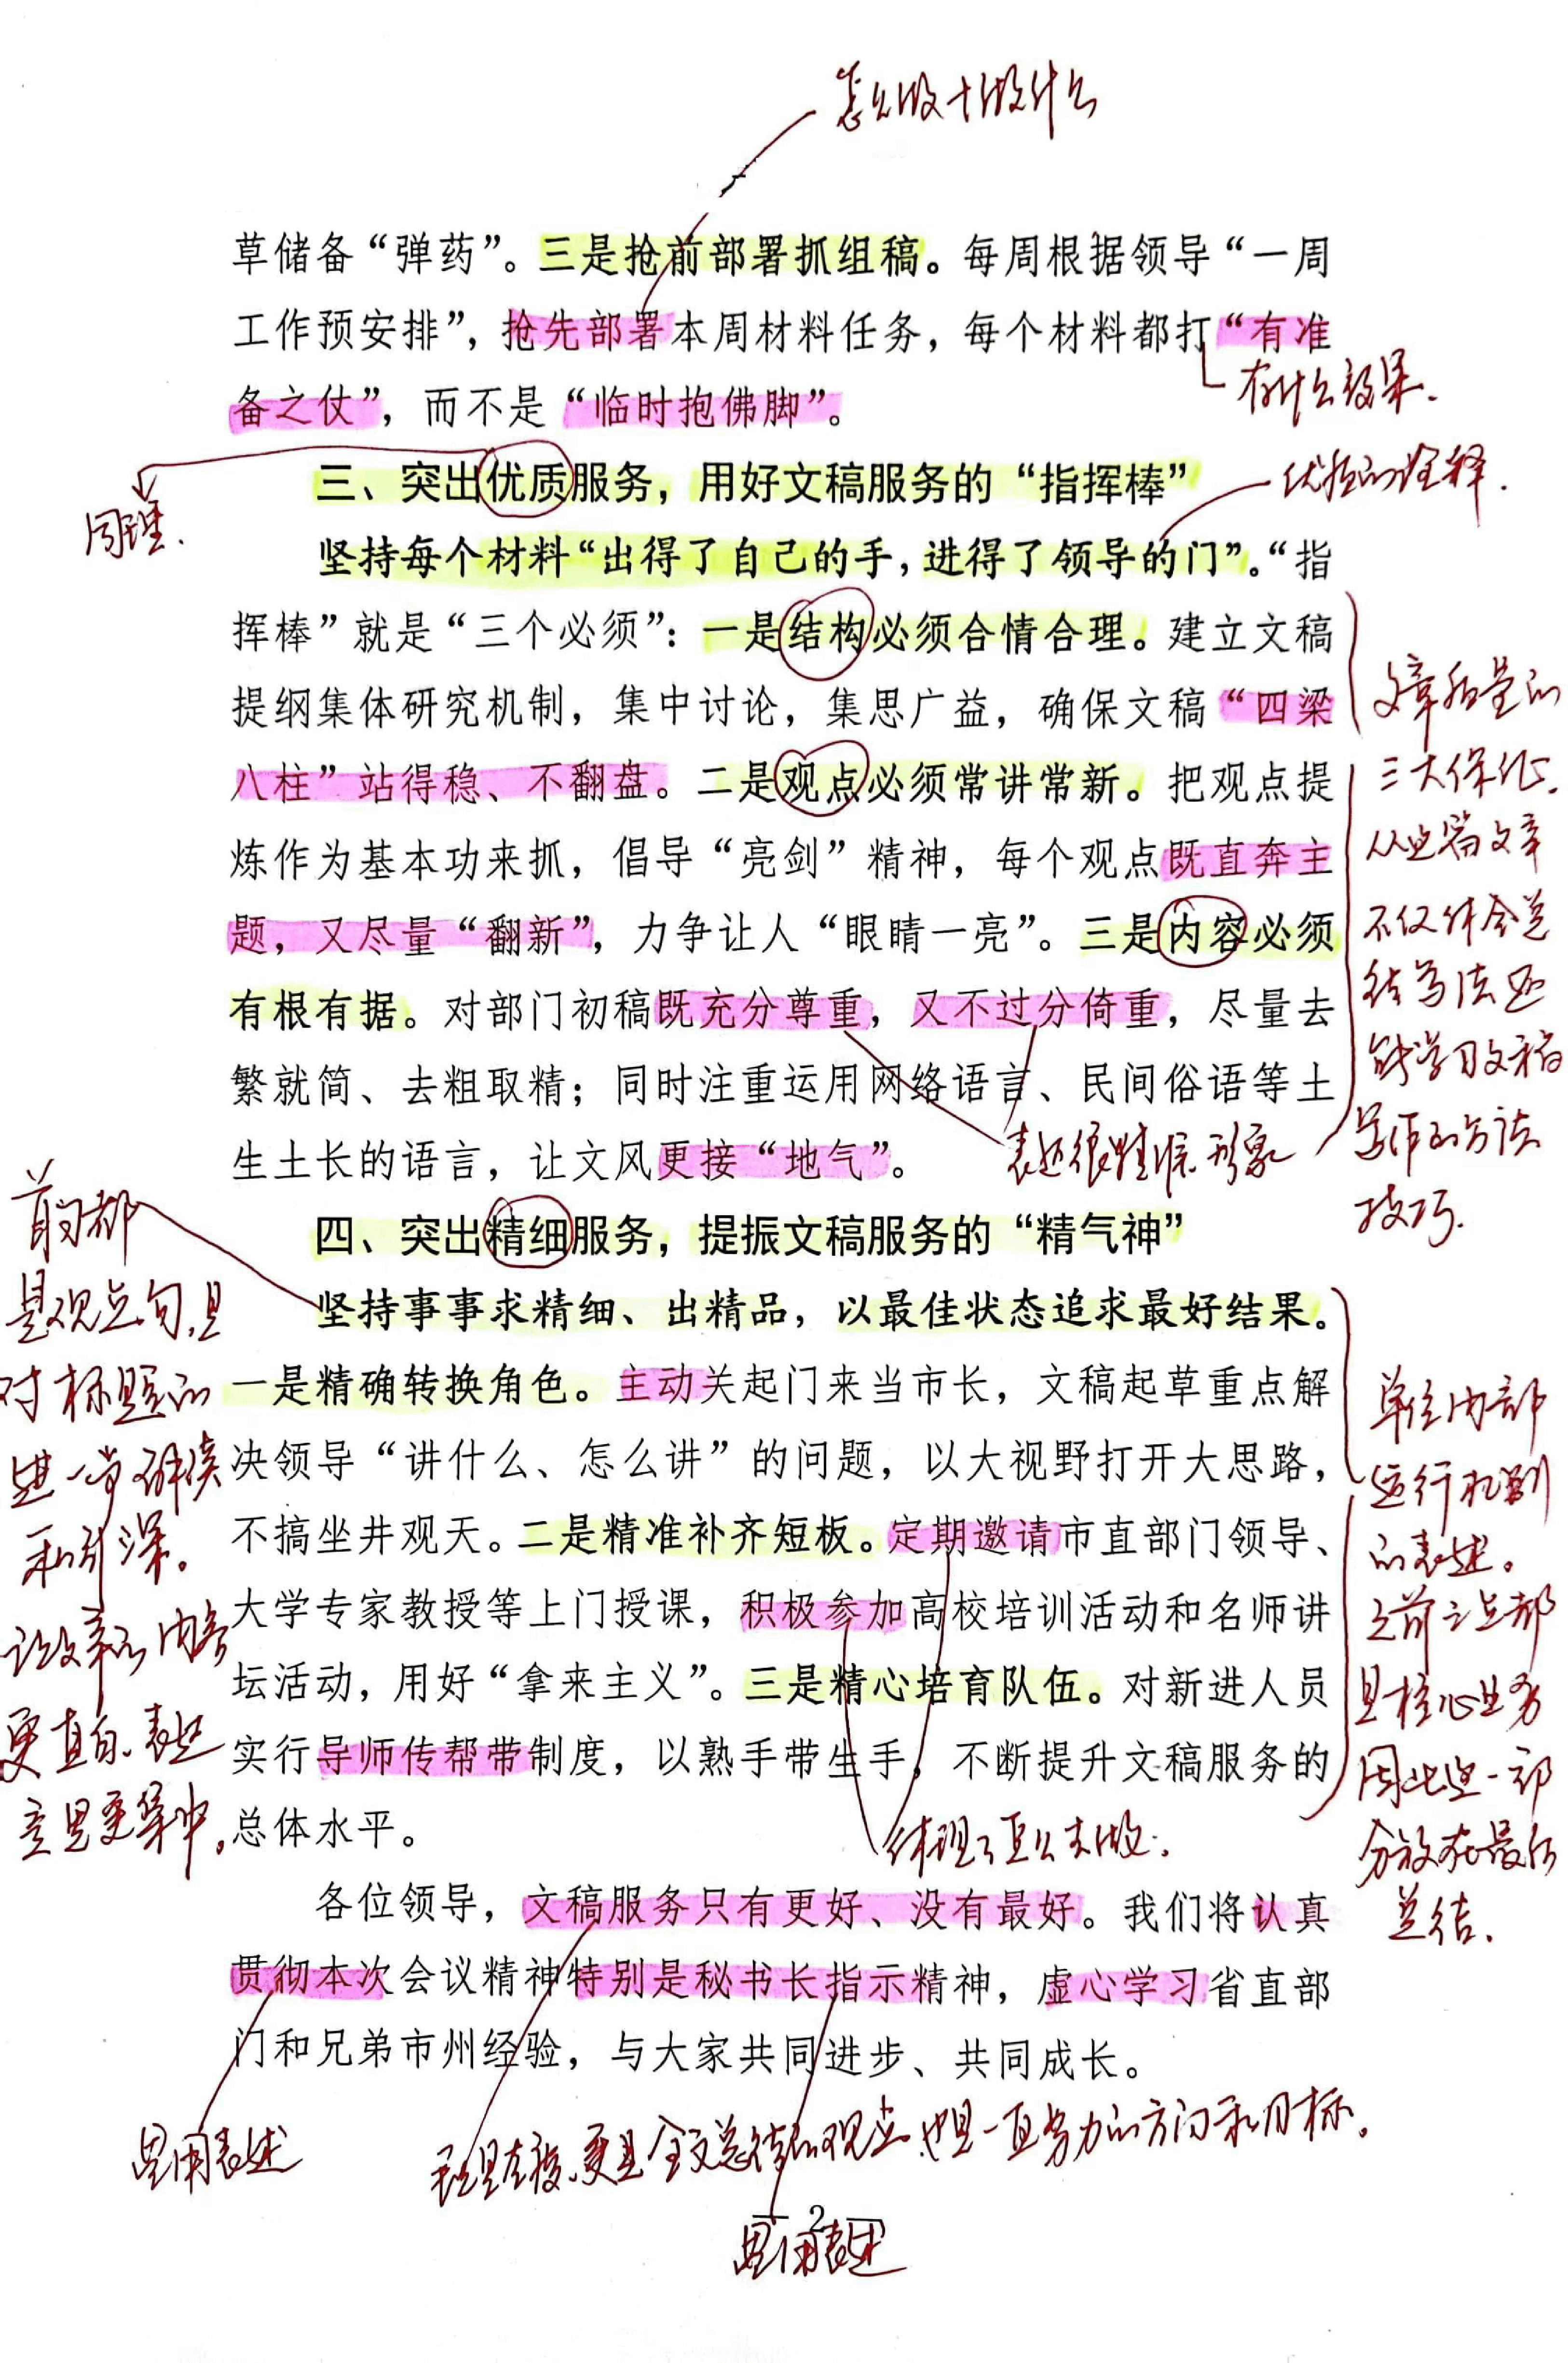 怎么做+做什么
草储备“弹药”。三是抢前部署抓组稿。每周根据领导“一周
工作预安排”，抢先部署本周材料任务，每个材料都打“有准
备之仗”，而不是“临时抱佛脚”。
有什么效果.
三、突出优质服务，用好文稿服务的“指挥棒”
优质的诠释.
同理.
坚持每个材料“出得了自己的手,进得了领导的门”。“指
挥棒”就是“三个必须”：一是结构必须合情合理。建立文稿
提纲集体研究机制，集中讨论，集思广益，确保文稿“四梁
八柱”站得稳、不翻盘。二是观点必须常讲常新。把观点提
炼作为基本功来抓，倡导“亮剑”精神，每个观点既直奔主
题，又尽量“翻新”，力争让人“眼睛一亮”。三是内容必须
有根有据。对部门初稿既充分尊重，又不过分倚重，尽量去
繁就简、去粗取精；同时注重运用网络语言、民间俗语等土
生土长的语言，让文风更接“地气”。
文章质量的
三大保证.
从这篇文章
不仅体会总
结写法还
能学习文稿
写作的方法
技巧.
表述很精准形象
四、突出精细服务，提振文稿服务的“精气神”
坚持事事求精细、出精品，以最佳状态追求最好结果。
一是精确转换角色。主动关起门来当市长，文稿起草重点解
决领导“讲什么、怎么讲”的问题，以大视野打开大思路，
不搞坐井观天。二是精准补齐短板。定期邀请市直部门领导、
大学专家教授等上门授课，积极参加高校培训活动和名师讲
坛活动，用好“拿来主义”。三是精心培育队伍。对新进人员
实行导师传帮带制度，以熟手带生手，不断提升文稿服务的
总体水平。
首句都
是观点句,且
对标题的
进一步解读
和引深。
让文章的内容
更直白、表述
意思更集中。
单位内部
运行机制
的表述。
之前三点都
是核心业务
因此这一部
分放在最后
总结.
体现了怎么去做.
各位领导，文稿服务只有更好、没有最好。我们将认真
贯彻本次会议精神特别是秘书长指示精神，虚心学习省直部
门和兄弟市州经验，与大家共同进步、共同成长。
惯用表述
更是全文总结的观点,也是一直努力的方向和目标。
2
惯用表述